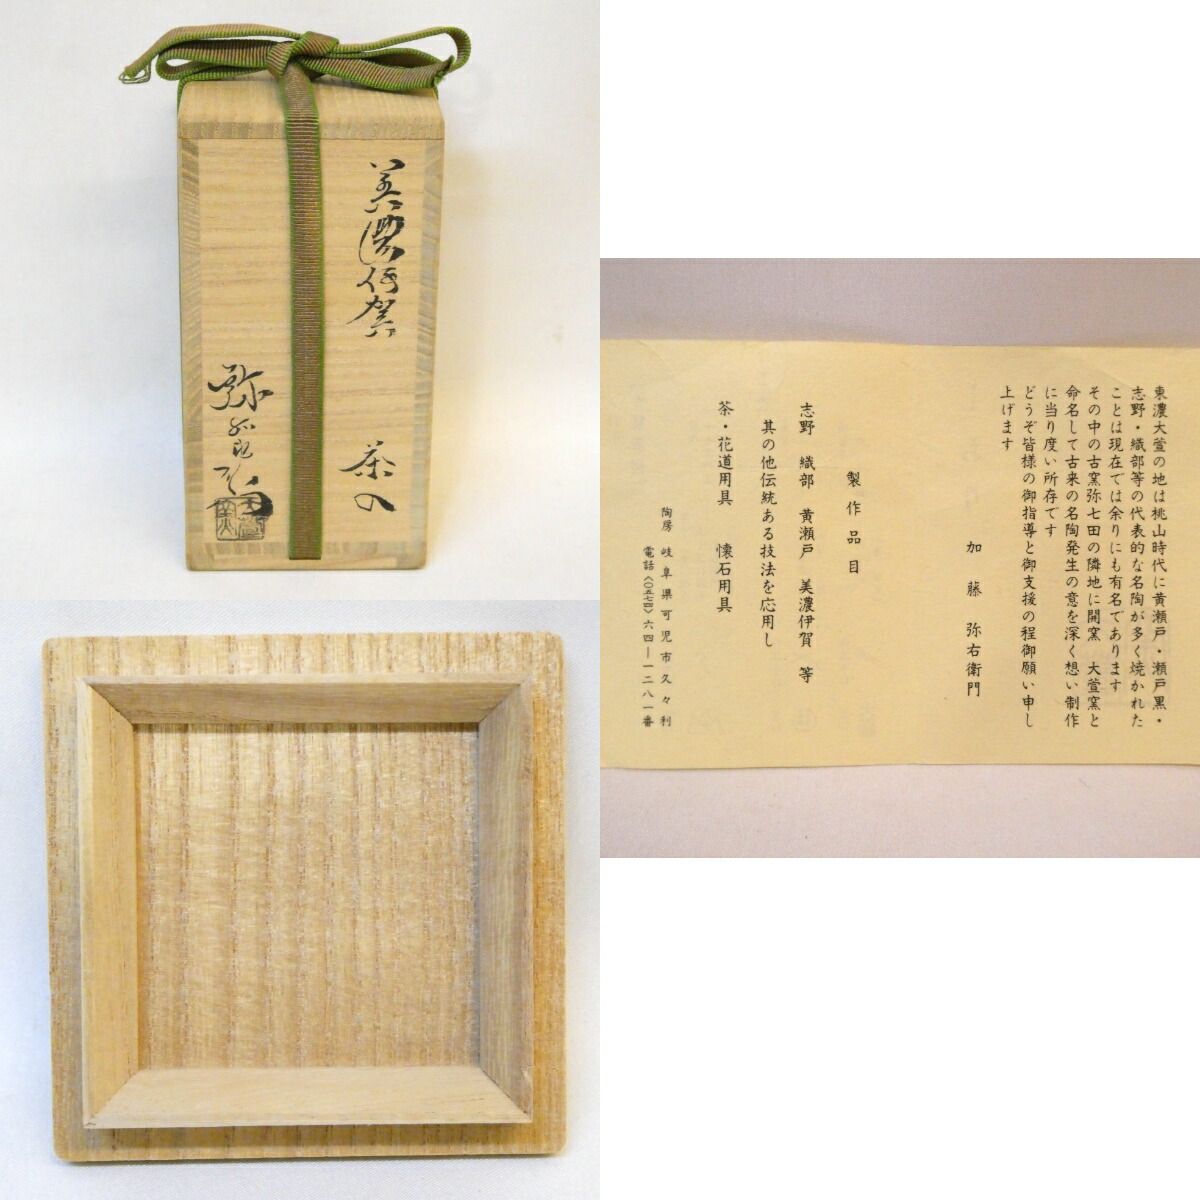 美濃伊賀
茶入
弥右衛門
東濃大萱の地は桃山時代に黄瀬戸・瀬戸黒・
志野・織部等の代表的な名陶が多く焼かれた
ことは現在では余りにも有名であります
その中の古窯弥七田の隣地に開窯　大萱窯と
命名して古来の名陶発生の意を深く想い制作
に当り度い所存です
どうぞ皆様の御指導と御支援の程御願い申し
上げます
加藤弥右衛門
製作品目
志野　織部　黄瀬戸　美濃伊賀　等
其の他伝統ある技法を応用し
茶・花道用具　懐石用具
陶房　岐阜県可児市久々利
電話〈〇五七四〉六四―一二八一番